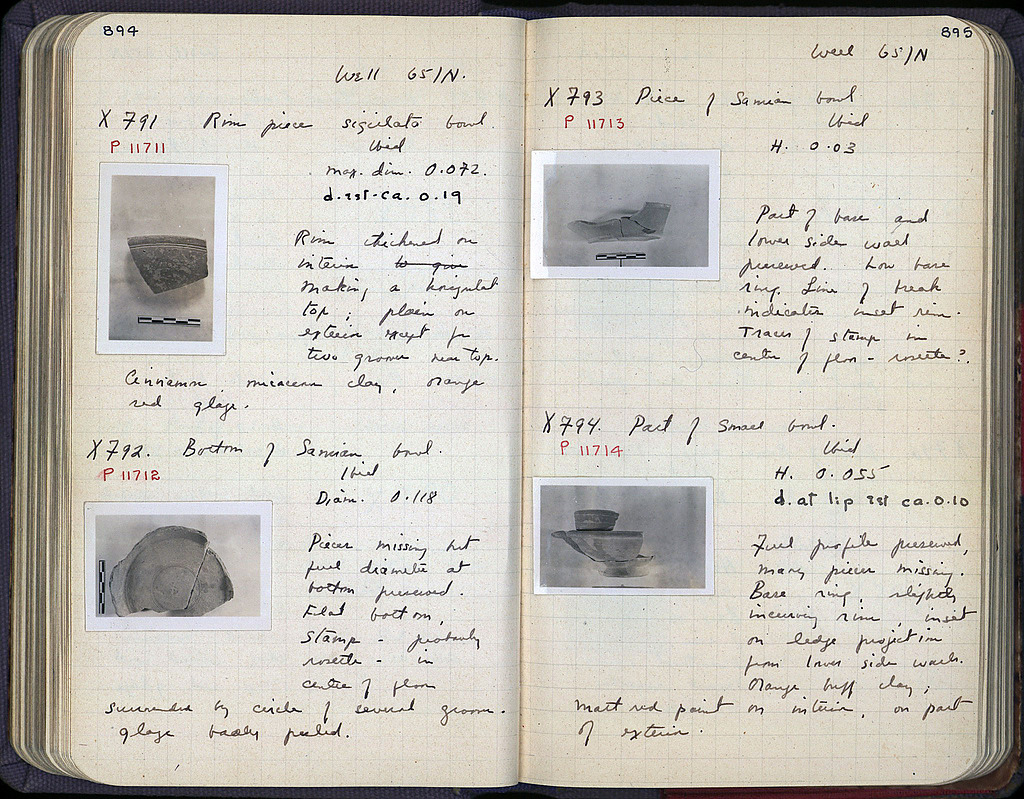 894
Well 65/N.
X 791 Rim piece sigillata bowl.
P 11711
Ibid
max. dim. 0.072.
d. est. ca. 0.19
Rim thickened on
interior to give
making a horizontal
top; plain on
exterior except for
two grooves near top.
Cinnamon micaceous clay, orange
red glaze.
X 792. Bottom of Samian bowl.
P 11712
Ibid
Diam. 0.118
Pieces missing but
full diameter at
bottom preserved.
Flat bottom,
stamp - probably
rosette - in
centre of floor
surrounded by circle of several grooves.
glaze badly peeled.
895
Well 65/N
X 793 Piece of Samian bowl
P 11713
Ibid
H. 0.03
Part of base and
lower side wall
preserved. Low base
ring. Line of break
indicates inset rim.
Traces of stamp in
centre of floor - rosette?.
X 794. Part of small bowl.
P 11714
Ibid
H. 0.055
d. at lip est ca. 0.10
Full profile preserved,
many pieces missing.
Base ring, slightly
incurving rim, inset
on ledge projection
from lower side walls.
Orange buff clay;
matt red paint on interior, on part
of exterior.